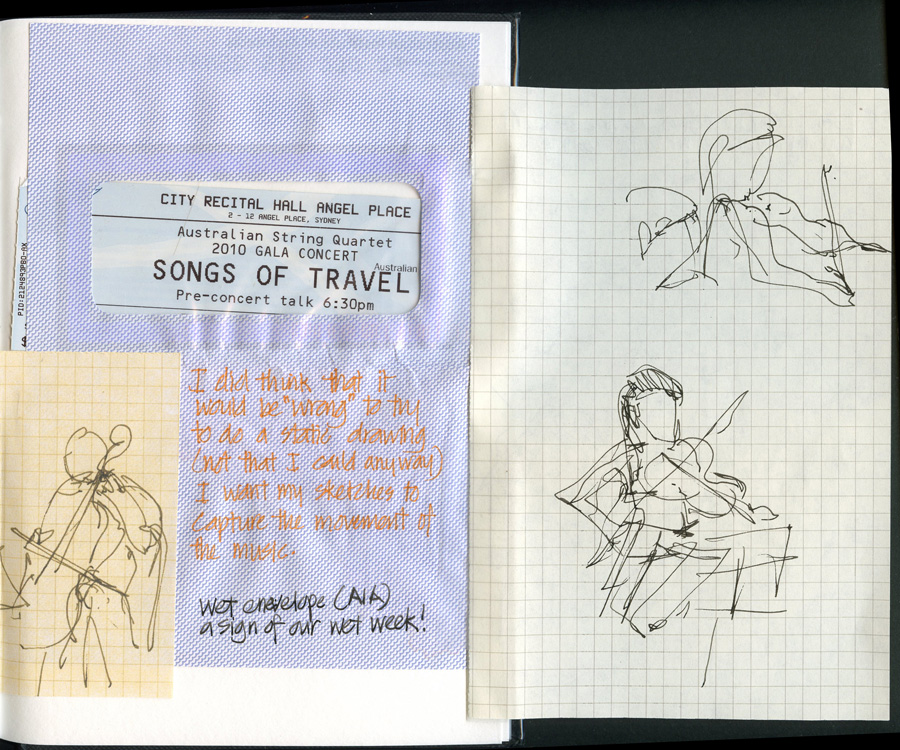 CITY RECITAL HALL ANGEL PLACE
2 - 12 ANGEL PLACE, SYDNEY
Australian String Quartet
2010 GALA CONCERT
Australian
SONGS OF TRAVEL
Pre-concert talk 6:30pm
I did think that it
would be "wrong" to try
to do a static drawing
(not that I could anyway)
I want my sketches to
capture the movement of
the music.
Wet envelope (AIA)
a sign of our wet week!